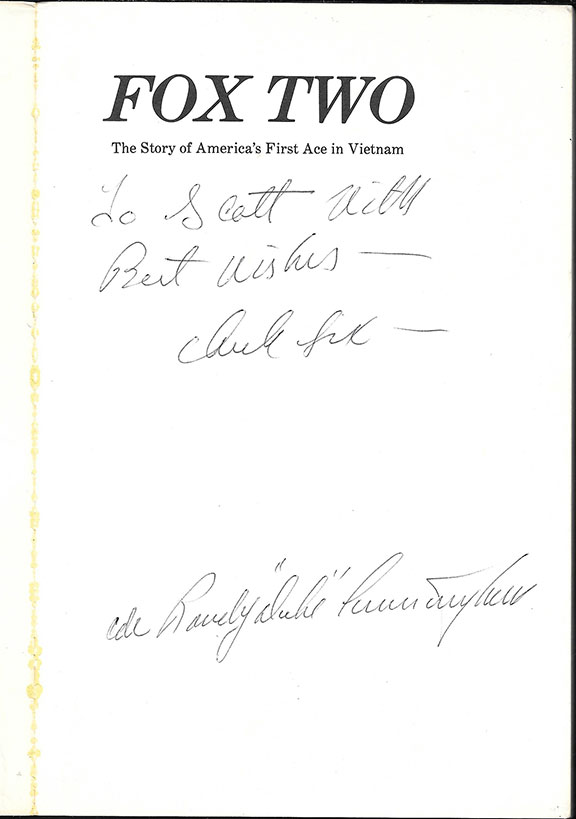 FOX TWO
The Story of America's First Ace in Vietnam
To Scott With
Best Wishes —
cdr Randy "Duke" Cunningham